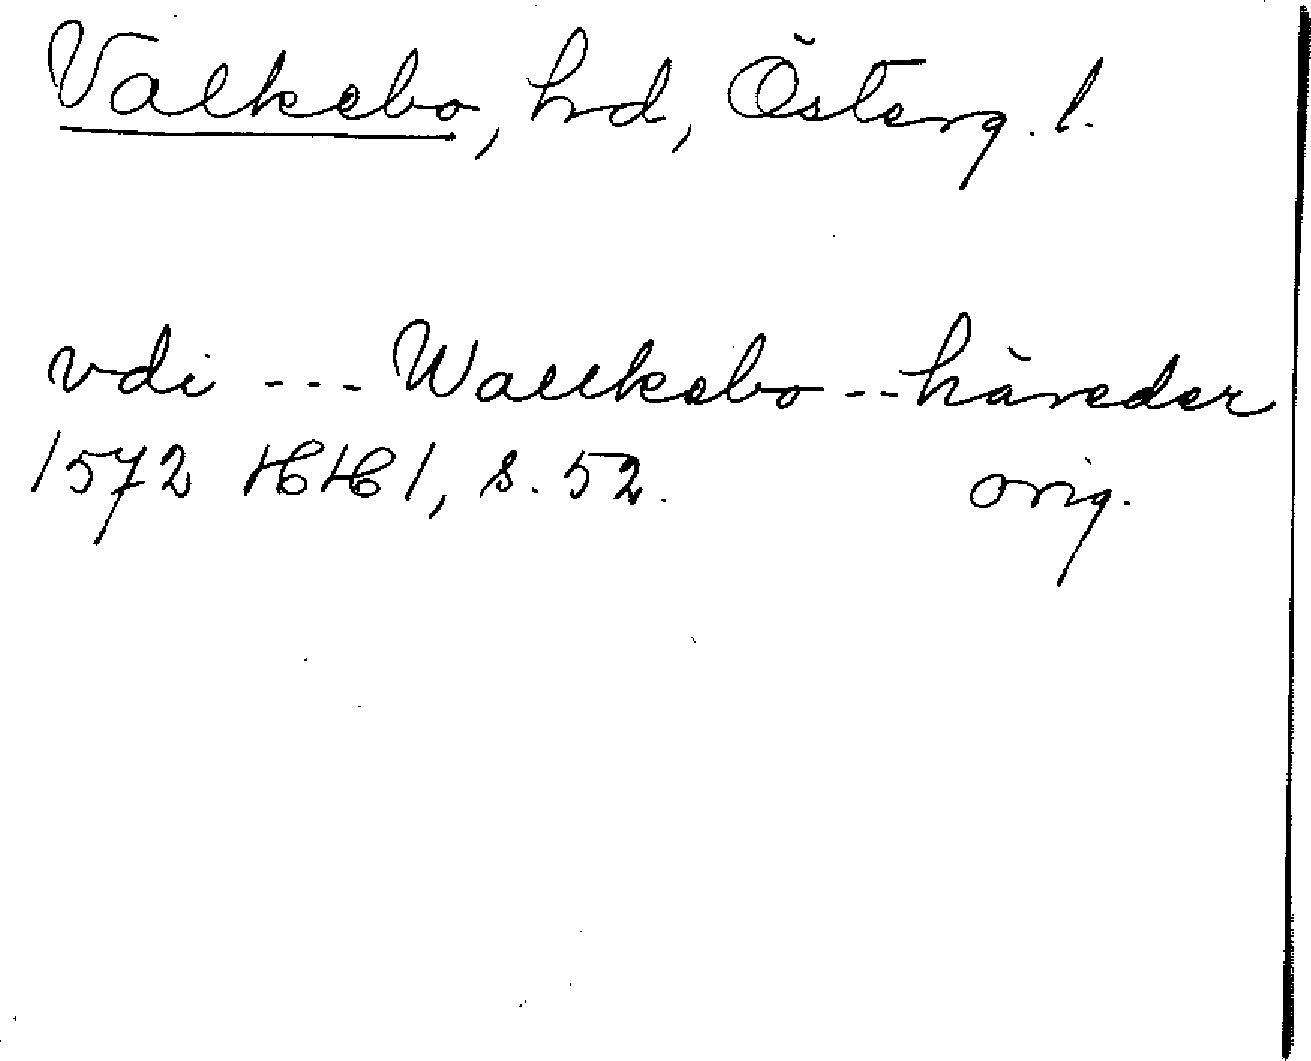 Valkebo, hd, Österg. l.
vdi --- Wallkebo -- häreder
1572 HH 1, s. 52. orig.